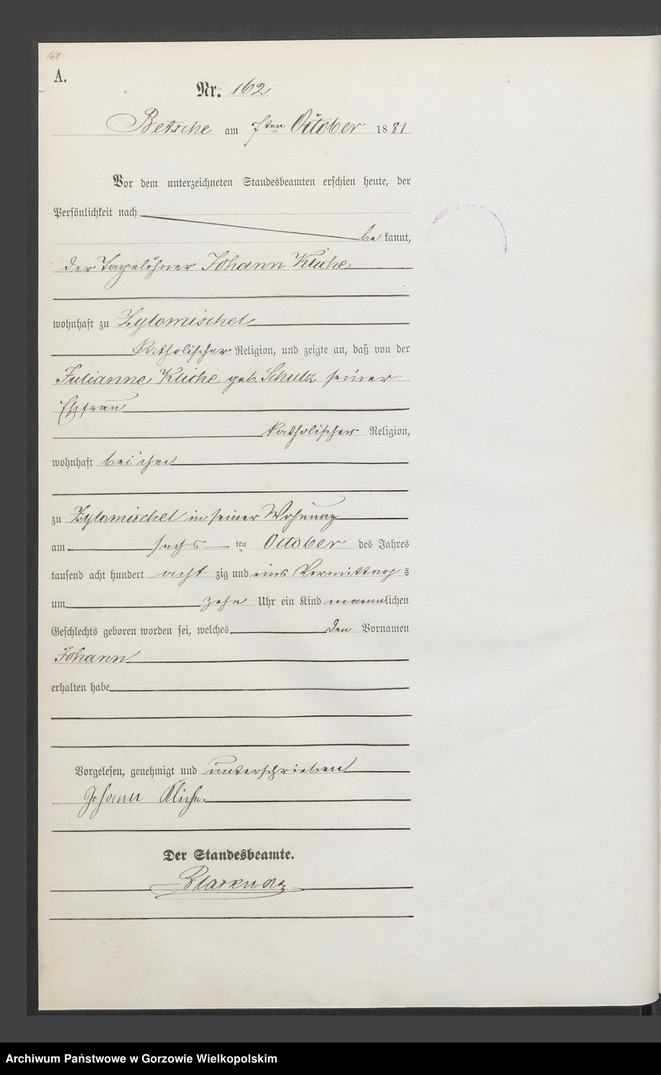 162
A.
Nr. 162
Betsche am 7ten October 1881
Vor dem unterzeichneten Standesbeamten erschien heute, der
Persönlichkeit nach
bekannt,
der Tagelöhner Johann Kliche
wohnhaft zu Zylomischel
katholischer Religion, und zeigte an, daß von der
Julianne Kliche geb. Schulz seiner
Ehefrau
katholischer Religion,
wohnhaft bei ihm
zu Zylomischel in seiner Wohnung
am sechs ten October des Jahres
tausend acht hundert acht zig und eins Vormittags
um zehn Uhr ein Kind männlichen
Geschlechts geboren worden sei, welches den Vornamen
Johann
erhalten habe
Vorgelesen, genehmigt und unterschrieben
Johann Kliche.
Der Standesbeamte.
Archiwum Państwowe w Gorzowie Wielkopolskim